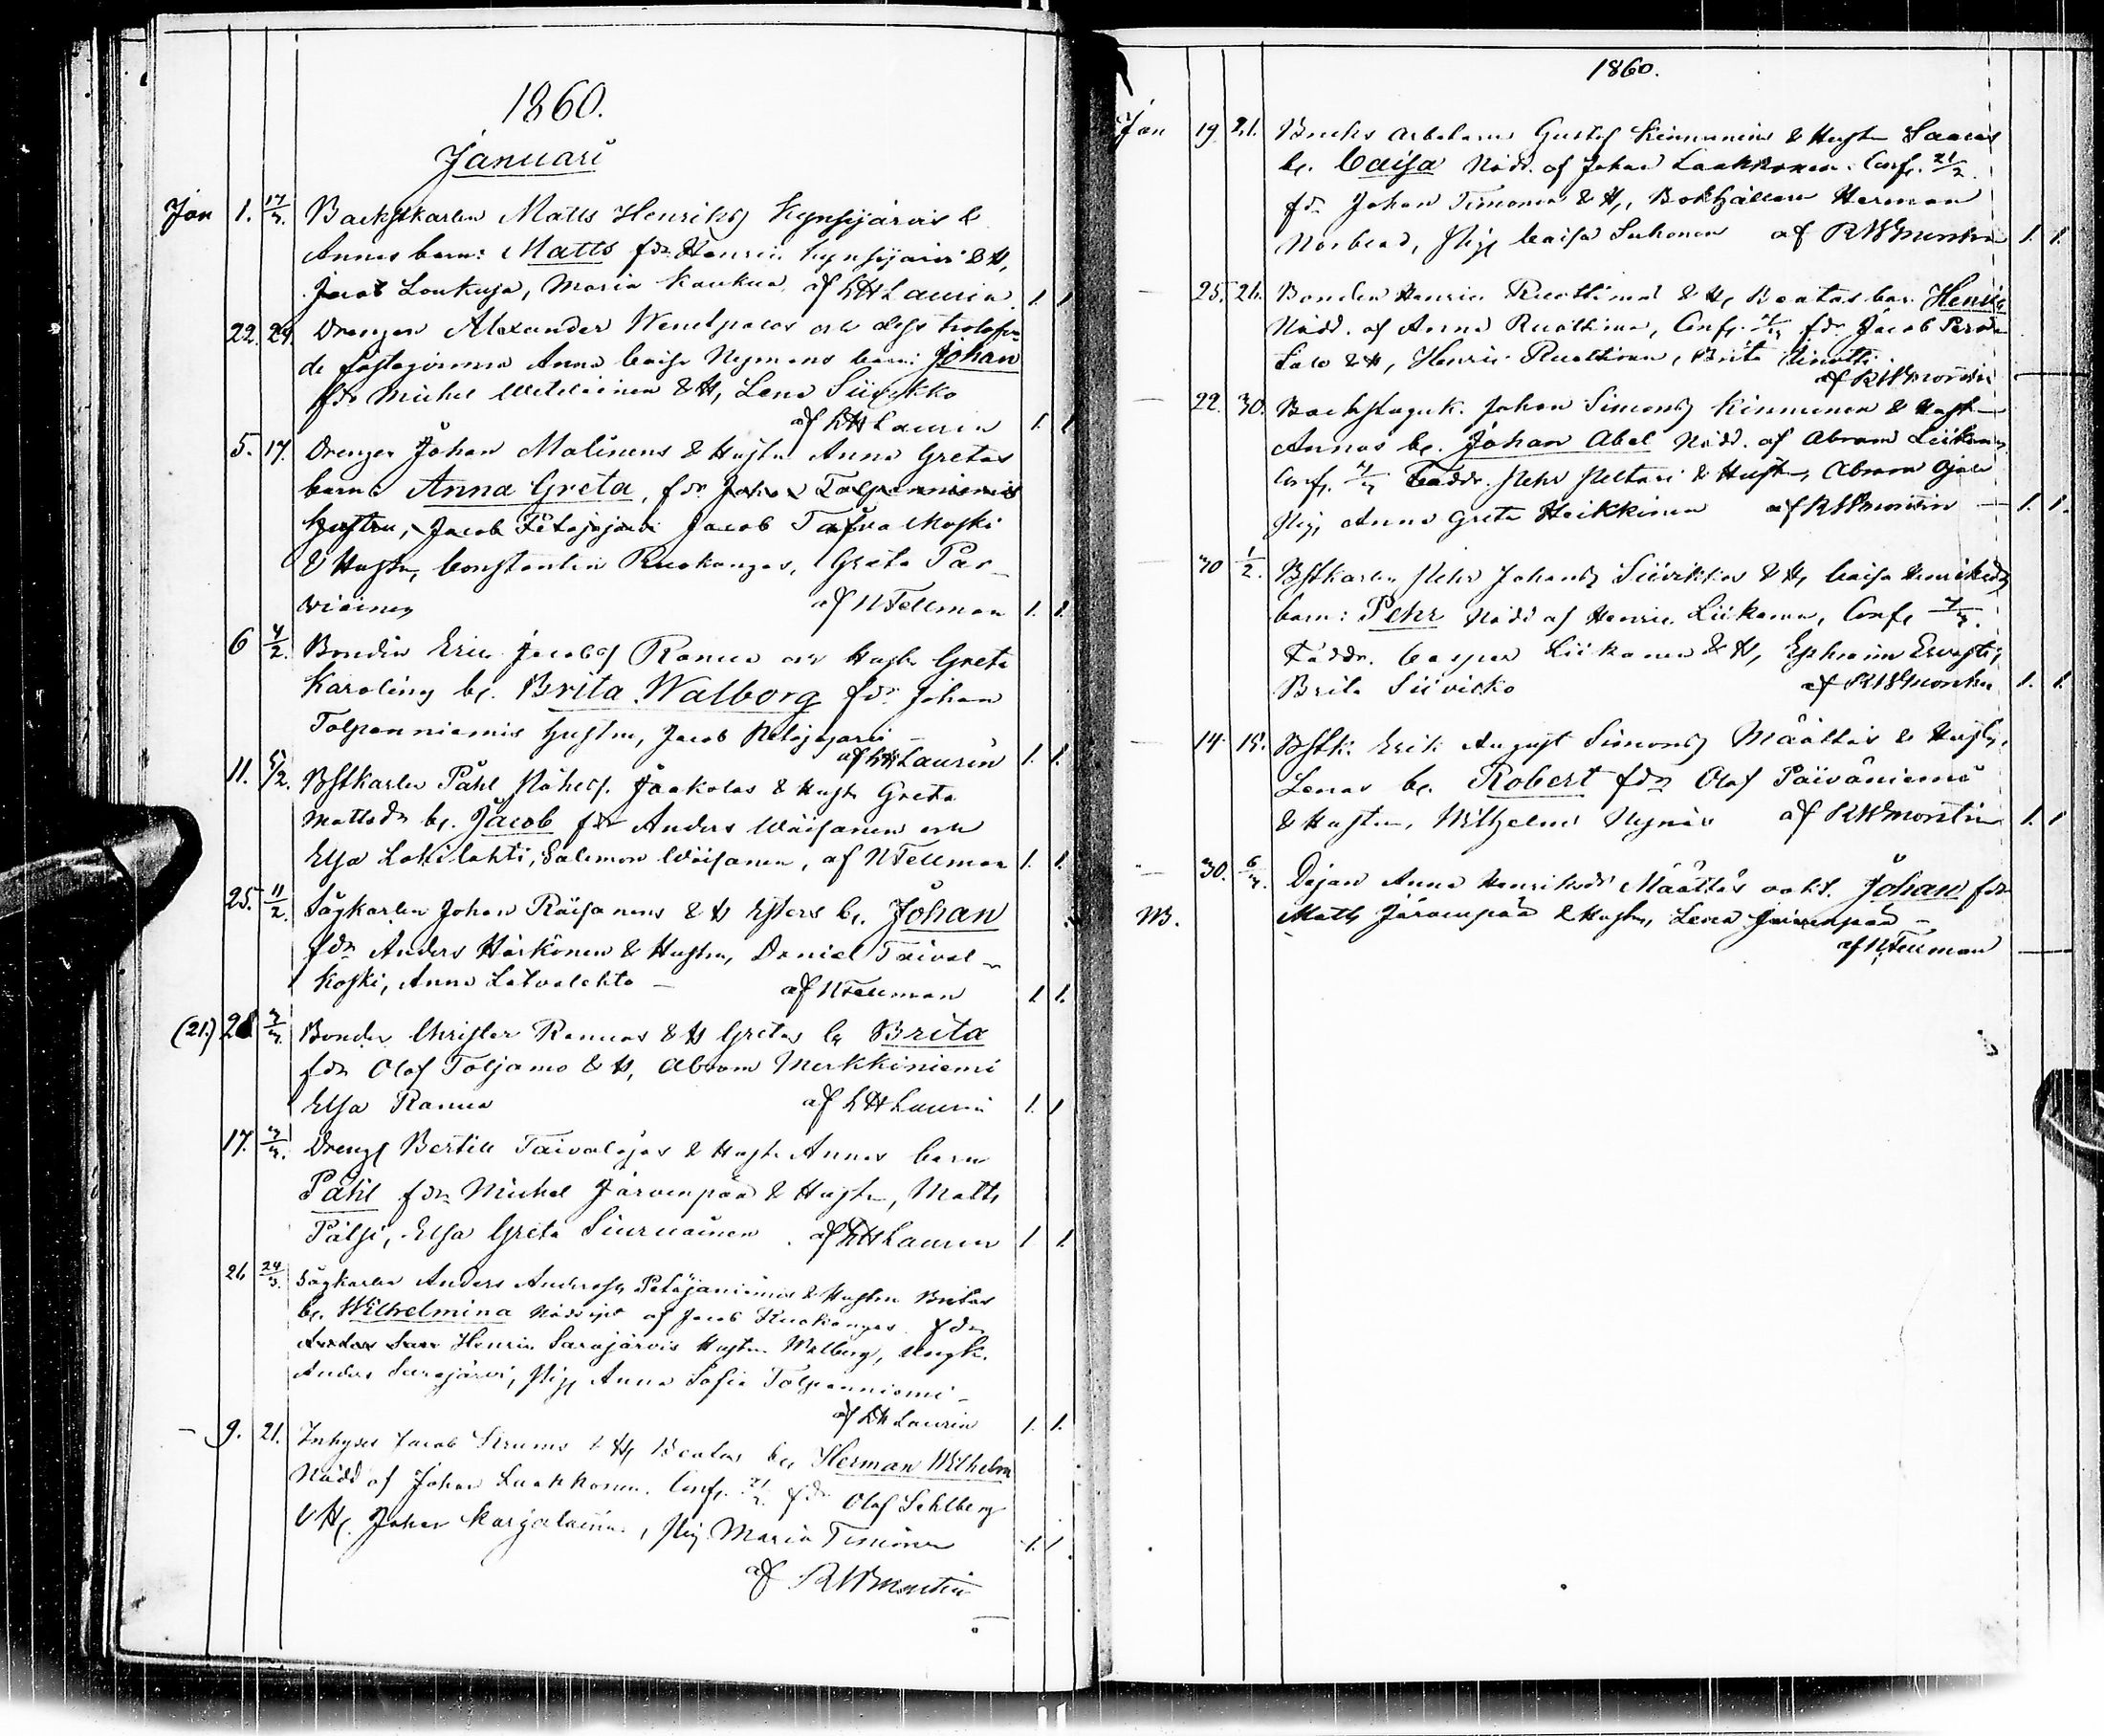 1860.
Januari
Jan 1. 17/3. Backstkarlen Matts Henrikss Kynsijärvis &
Annas barn: Matts fdr Henric Kynsijärvi & H,
Jacob Loukusa, Maria Kaukua af LHLaurin 1. 1
22. 29. Drengen Alexander Wenelpalos och dess trolofva-
de fästeqvinna Anna Caisa Nymans barn: Johan
fdr Michel & H, Lena Siivikko
af LHLaurin 1. 1
5. 17. Drengen Johan Malinens & Hustru Anna Gretas
barn: Anna Greta, fdr Johan Talpanniemis
hustru, Jacob Petäjäjärvi Jacob Taivalkoski
& Hustru, Constantin Ruokangas, Greta Par-
viainen af NFellman 1. 1.
6 4/2. Bonden Eric Jacobss Ranua och Hustr Greta
Karolinas b. Brita Walborg fdr Johan
Talpanniemis hustru, Jacob Petäjäjärvi –
af LHLaurin 1. 1.
11. 5/2. Bstkarlen Påhl Påhlss. Jaakolas & Hustr Greta
Mattsdr b. Jacob fdr Anders Wäisänen och
Elsa Lohilahti, Salomon Wäisänen, af NFellman 1. 1.
25. 11/2. Sågkarlen Johan Räisänens & H Esters b. Johan
fdr Anders Härkönen & Hustru, Daniel Taival-
koski, Anna Latvalehto – af NFellman 1. 1.
(21.) 28 3/3 Bonden Christer Ranuas & H Gretas b. Brita
fdr Olof Toljamo & H, Abram Merkkiniemi
Elsa Ranua af LHLaurin 1. 1
17. 3/3. Drengs Bertill Taivalojas & Hustr Annas barn
Påhl fdr Michel Järvenpää & Hustru, Matts
Pätsi, Elsa Greta Siuruainen af LHLaurin 1 1.
26 24/3. Sågkarlen Anders Anderss Petäjäniemis & Hustru Britas
b. Wilhelmina Nöddöpt af Jacob Ruokangas fdr
Anders Henric Sarajärvis Hustru Walborg, Ungk.
Anders Sarajärvi, Pig Anna Sofia Talpanniemi –
af LHLaurin 1. 1.
– 9. 21. Inhyses Jacob & H. Beatas b. Herman Wilhelm
Nödd af Johan Laakkonen. Conf. 21/2 fdr Olof Sehlberg
& H. Johan Karjalainen, Pig Maria Timonen 1. 1
af RWMontin
1860.
Jan 19 21. Bruks arbetaren Gustaf Kinnunens & Hustr Saaras
b. Caisa Nödd. af Johan Laakkonen. Conf. 21/2.
fdr Johan Timonen & H, Bokhållaren Herman
Norblad, Pig Caisa Suhonen af RWMontin 1. 1.
– 25. 26. Bonden Henric Ruottinens & H, Beatas bar. Henric
Nödd. af Anna Ruottinen, Conf. fdr Jacob
& H, Henric Ruottinen, Brita
af RWMontin –
– 22. 30. Backstuguk. Johan Simonss Kinnunen & Hustr
Annas b. Johan Abel Nödd. af Abram Liikanen
Conf. Faddr. Pehr Peltari & Hustr, Abram
Pig, Anna Greta Heikkinen af RWMontin – 1. 1.
– 30 1/2. Bstkarlen Pehr Johanss Siivikkos & H, Caisa Henriksdr
barn: Pehr Nödd af Henric Liikanen, Conf.
Faddr. Casper Liikanen & H, Ephraim Ervasti,
Brita Siivikko af RWMontin 1. 1.
– 14. 15. Bstk. Erik August Simonss Määttäs & Hustr,
Lenas b. Robert fdr Olof Päiväniemi
& Hustru, Wilhelmi af RWMontin 1. 1
– 30. 6/3. Dejan Anna Henriksdr Määttäs oäkt. Johan fdr
NB. Matts Järvenpää & Hustru, Lena Järvenpää –
af NFellman –